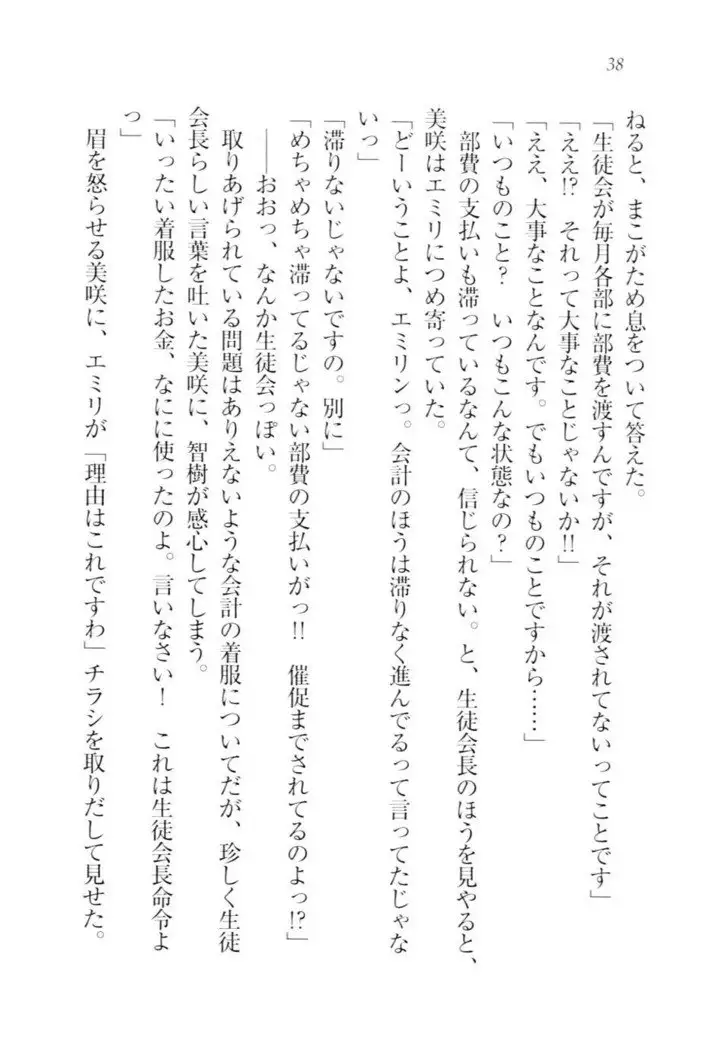 38
ねると、まこがため息をついて答えた。
「生徒会が毎月各部に部費を渡すんですが、それが渡されてないってことです」
「ええ!?　それって大事なことじゃないか!!」
「ええ、大事なことなんです。でもいつものことですから……」
「いつものこと?　いつもこんな状態なの?」
部費の支払いも滞っているなんて、信じられない。と、生徒会長のほうを見やると、
美咲はエミリにつめ寄っていた。
「どーいうことよ、エミリンっ。会計のほうは滞りなく進んでるって言ってたじゃな
いっ」
「滞りないじゃないですの。別に」
「めちゃめちゃ滞ってるじゃない部費の支払いがっ!!　催促までされてるのよっ!?」
――おおっ、なんか生徒会っぽい。
取りあげられている問題はありえないような会計の着服についてだが、珍しく生徒
会長らしい言葉を吐いた美咲に、智樹が感心してしまう。
「いったい着服したお金、なにに使ったのよ。言いなさい!　これは生徒会長命令よ
っ」
眉を怒らせる美咲に、エミリが「理由はこれですわ」チラシを取りだして見せた。